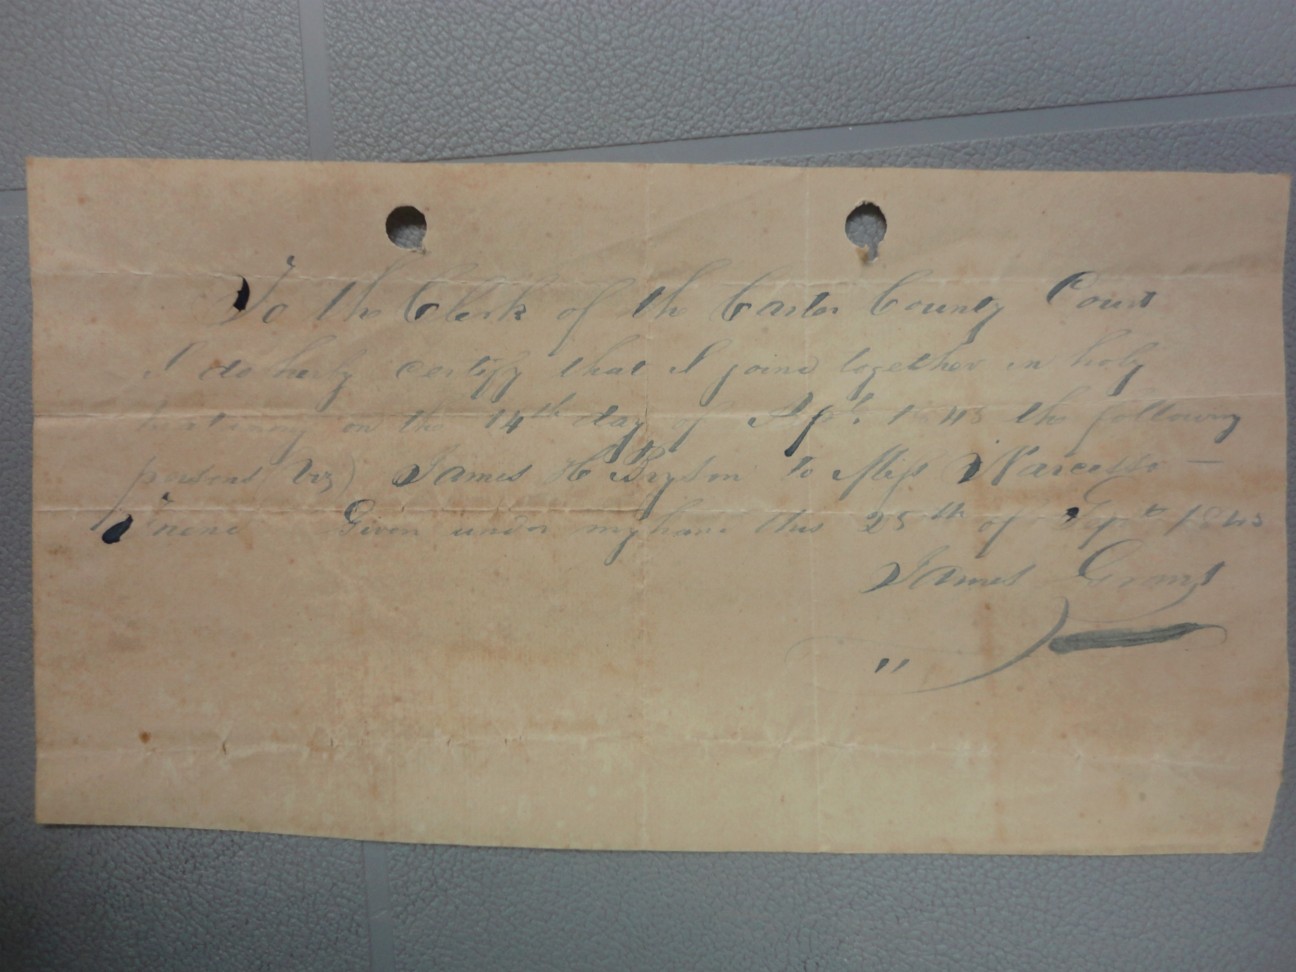 To the Clerk of the Carter County Court
I do herby certify that I joind together in holy
on the 14th day of Sept. 1843 the following
persons viz) James H Bryson to Miss Narcissa –
Given under my hand this 25th of Sept 1843
James Grant
"